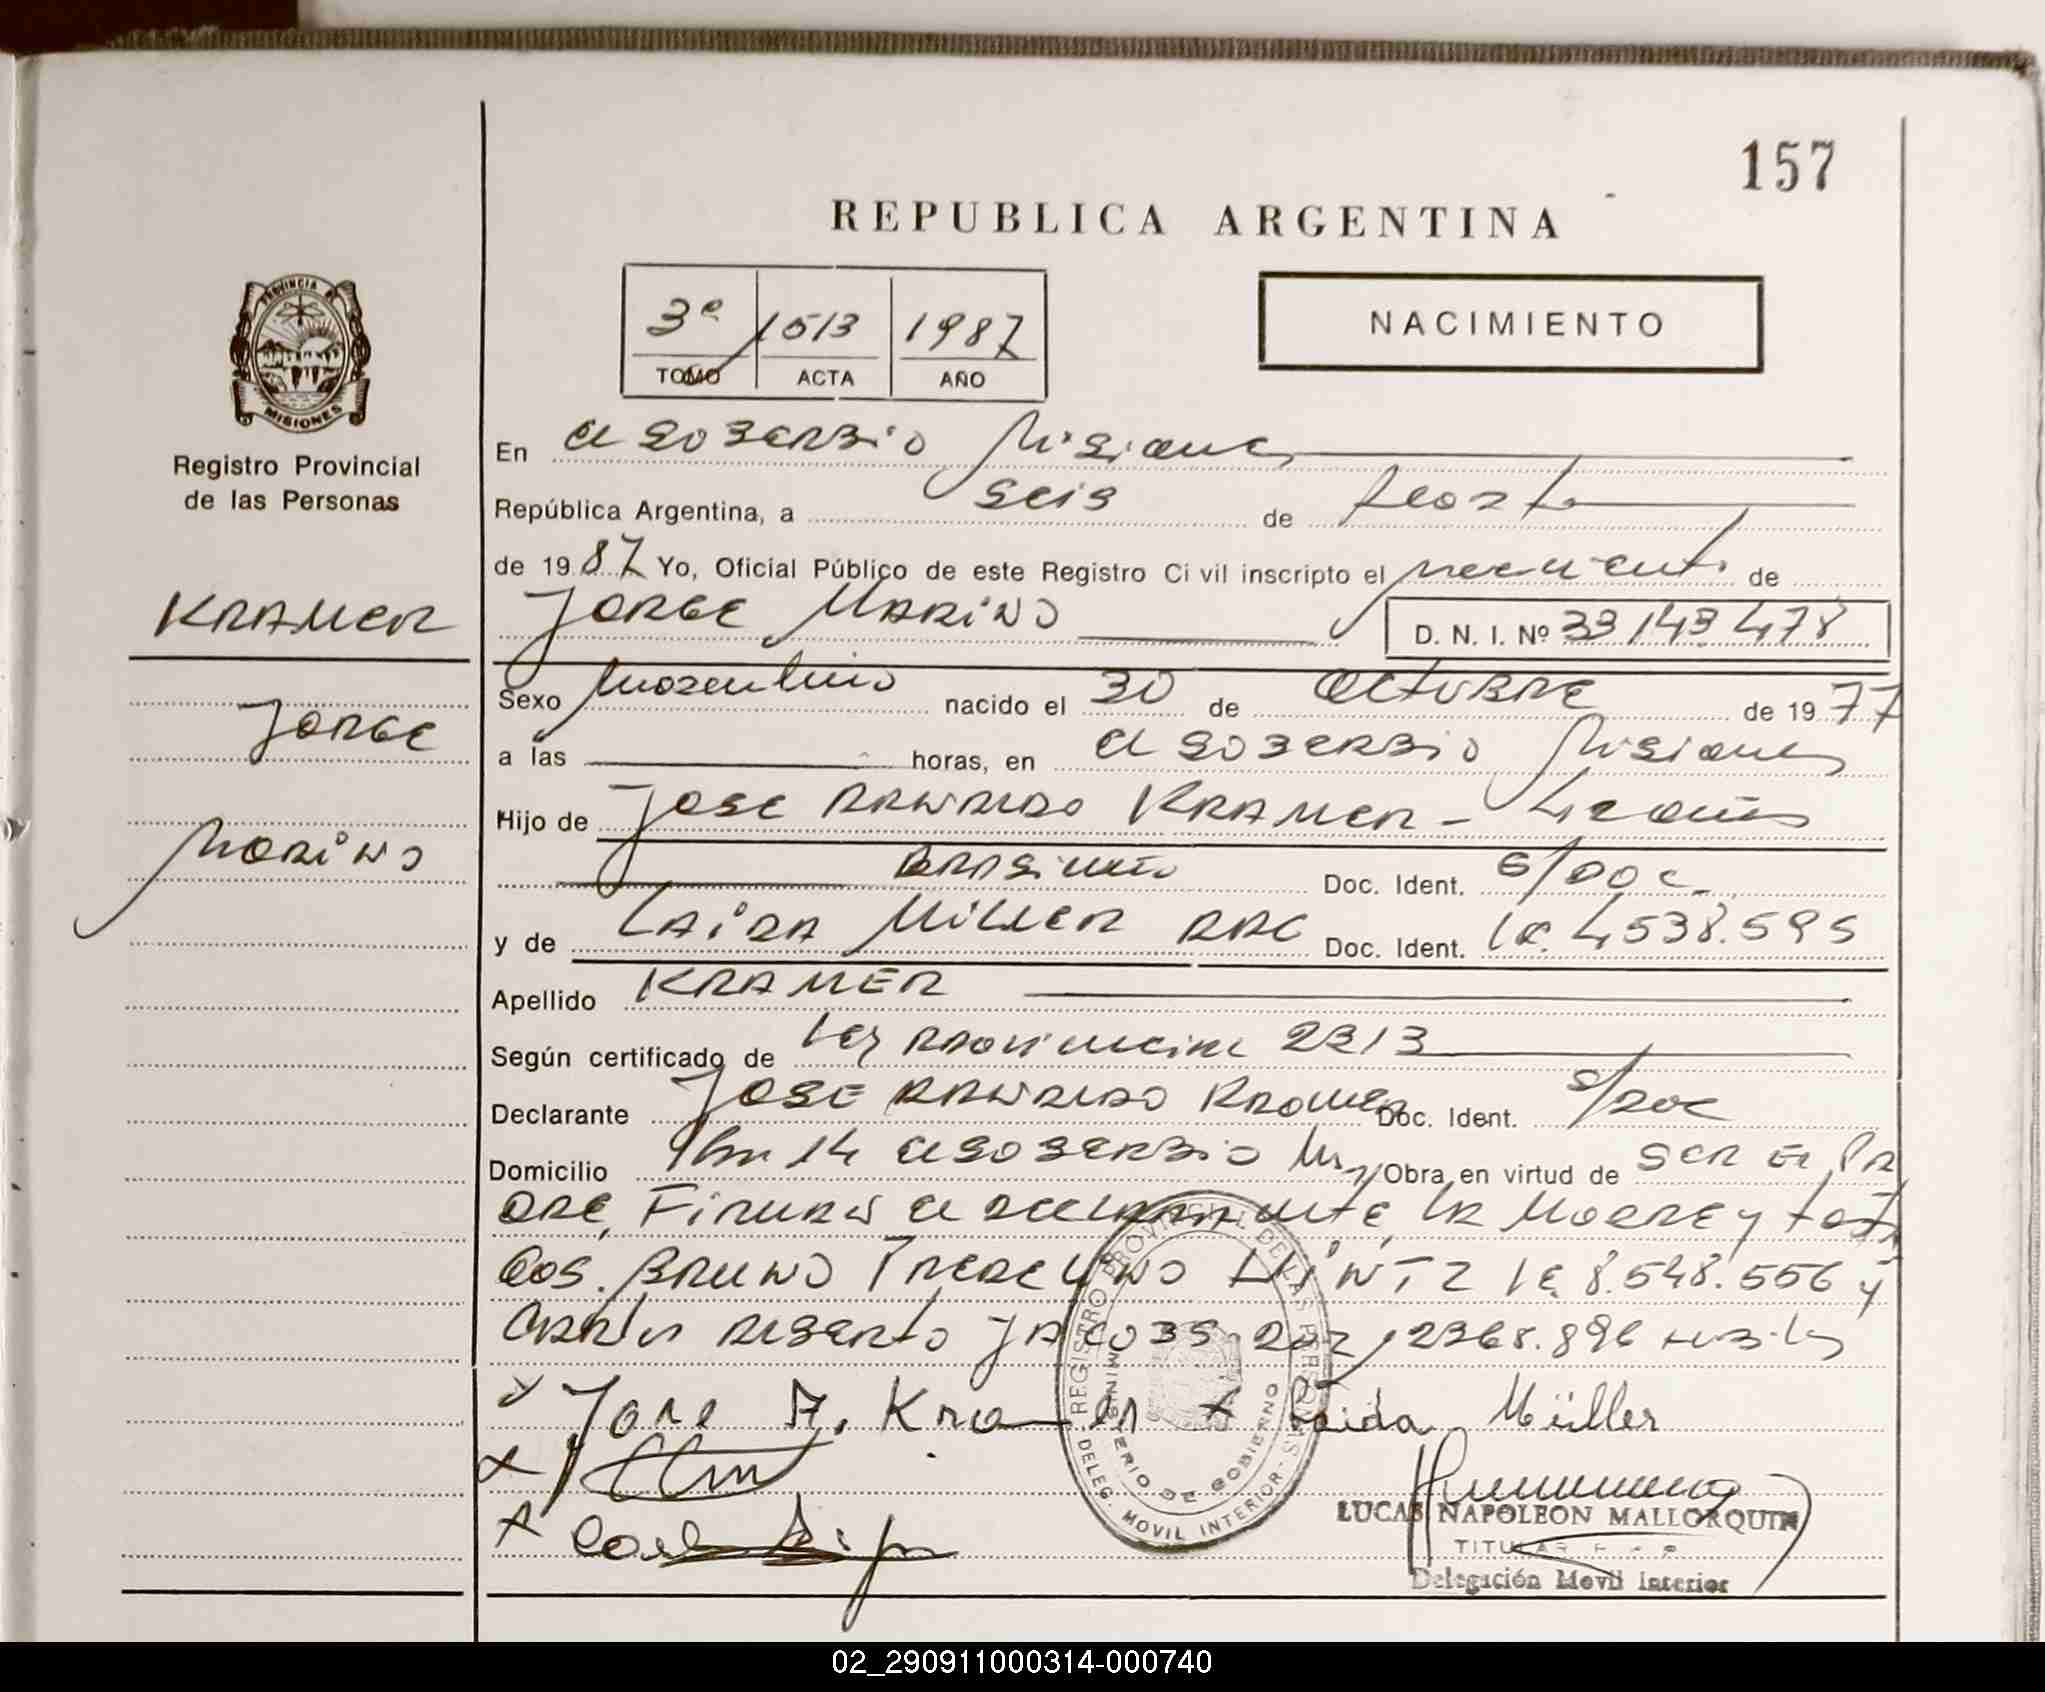 157
REPUBLICA ARGENTINA
3º 1513 1987
TOMO ACTA AÑO
NACIMIENTO
PROVINCIA DE
MISIONES
Registro Provincial
de las Personas
KRAMER
JORGE
MARINO
En El SOBERBIO Misiones
República Argentina, a SEIS de Agosto
de 1987 Yo, Oficial Público de este Registro Civil inscripto el nacimiento de
JORGE MARINO D. N. I. Nº 33143478
Sexo Masculino nacido el 30 de OCTUBRE de 1977
a las horas, en El SOBERBIO Misiones
Hijo de JOSE KRAMER -
Doc. Ident. S/DOC
y de LAIDA MILLER DE Doc. Ident. LC. 4538.595
Apellido KRAMER
Según certificado de Ley PROVINCIAL 2313
Declarante JOSE KRAMER Doc. Ident. S/DOC
Domicilio Km 14 El SOBERBIO Ms, Obra en virtud de SER El PA
DRE, FIRMAN El DECLARANTE, LA MADRE y testi
gos. BRUNO LE 8.548.556 y
CARLOS ALBERTO JACOBS 2368.896
x Jose A. Kramer x Laida Müller
x
x
REGISTRO PROVINCIAL DE LAS PERSONAS
MINISTERIO DE GOBIERNO
DELEG. MOVIL INTERIOR
LUCAS NAPOLEON MALLORQUIN
TITULAR
Delegación Movil Interior
02_290911000314-000740